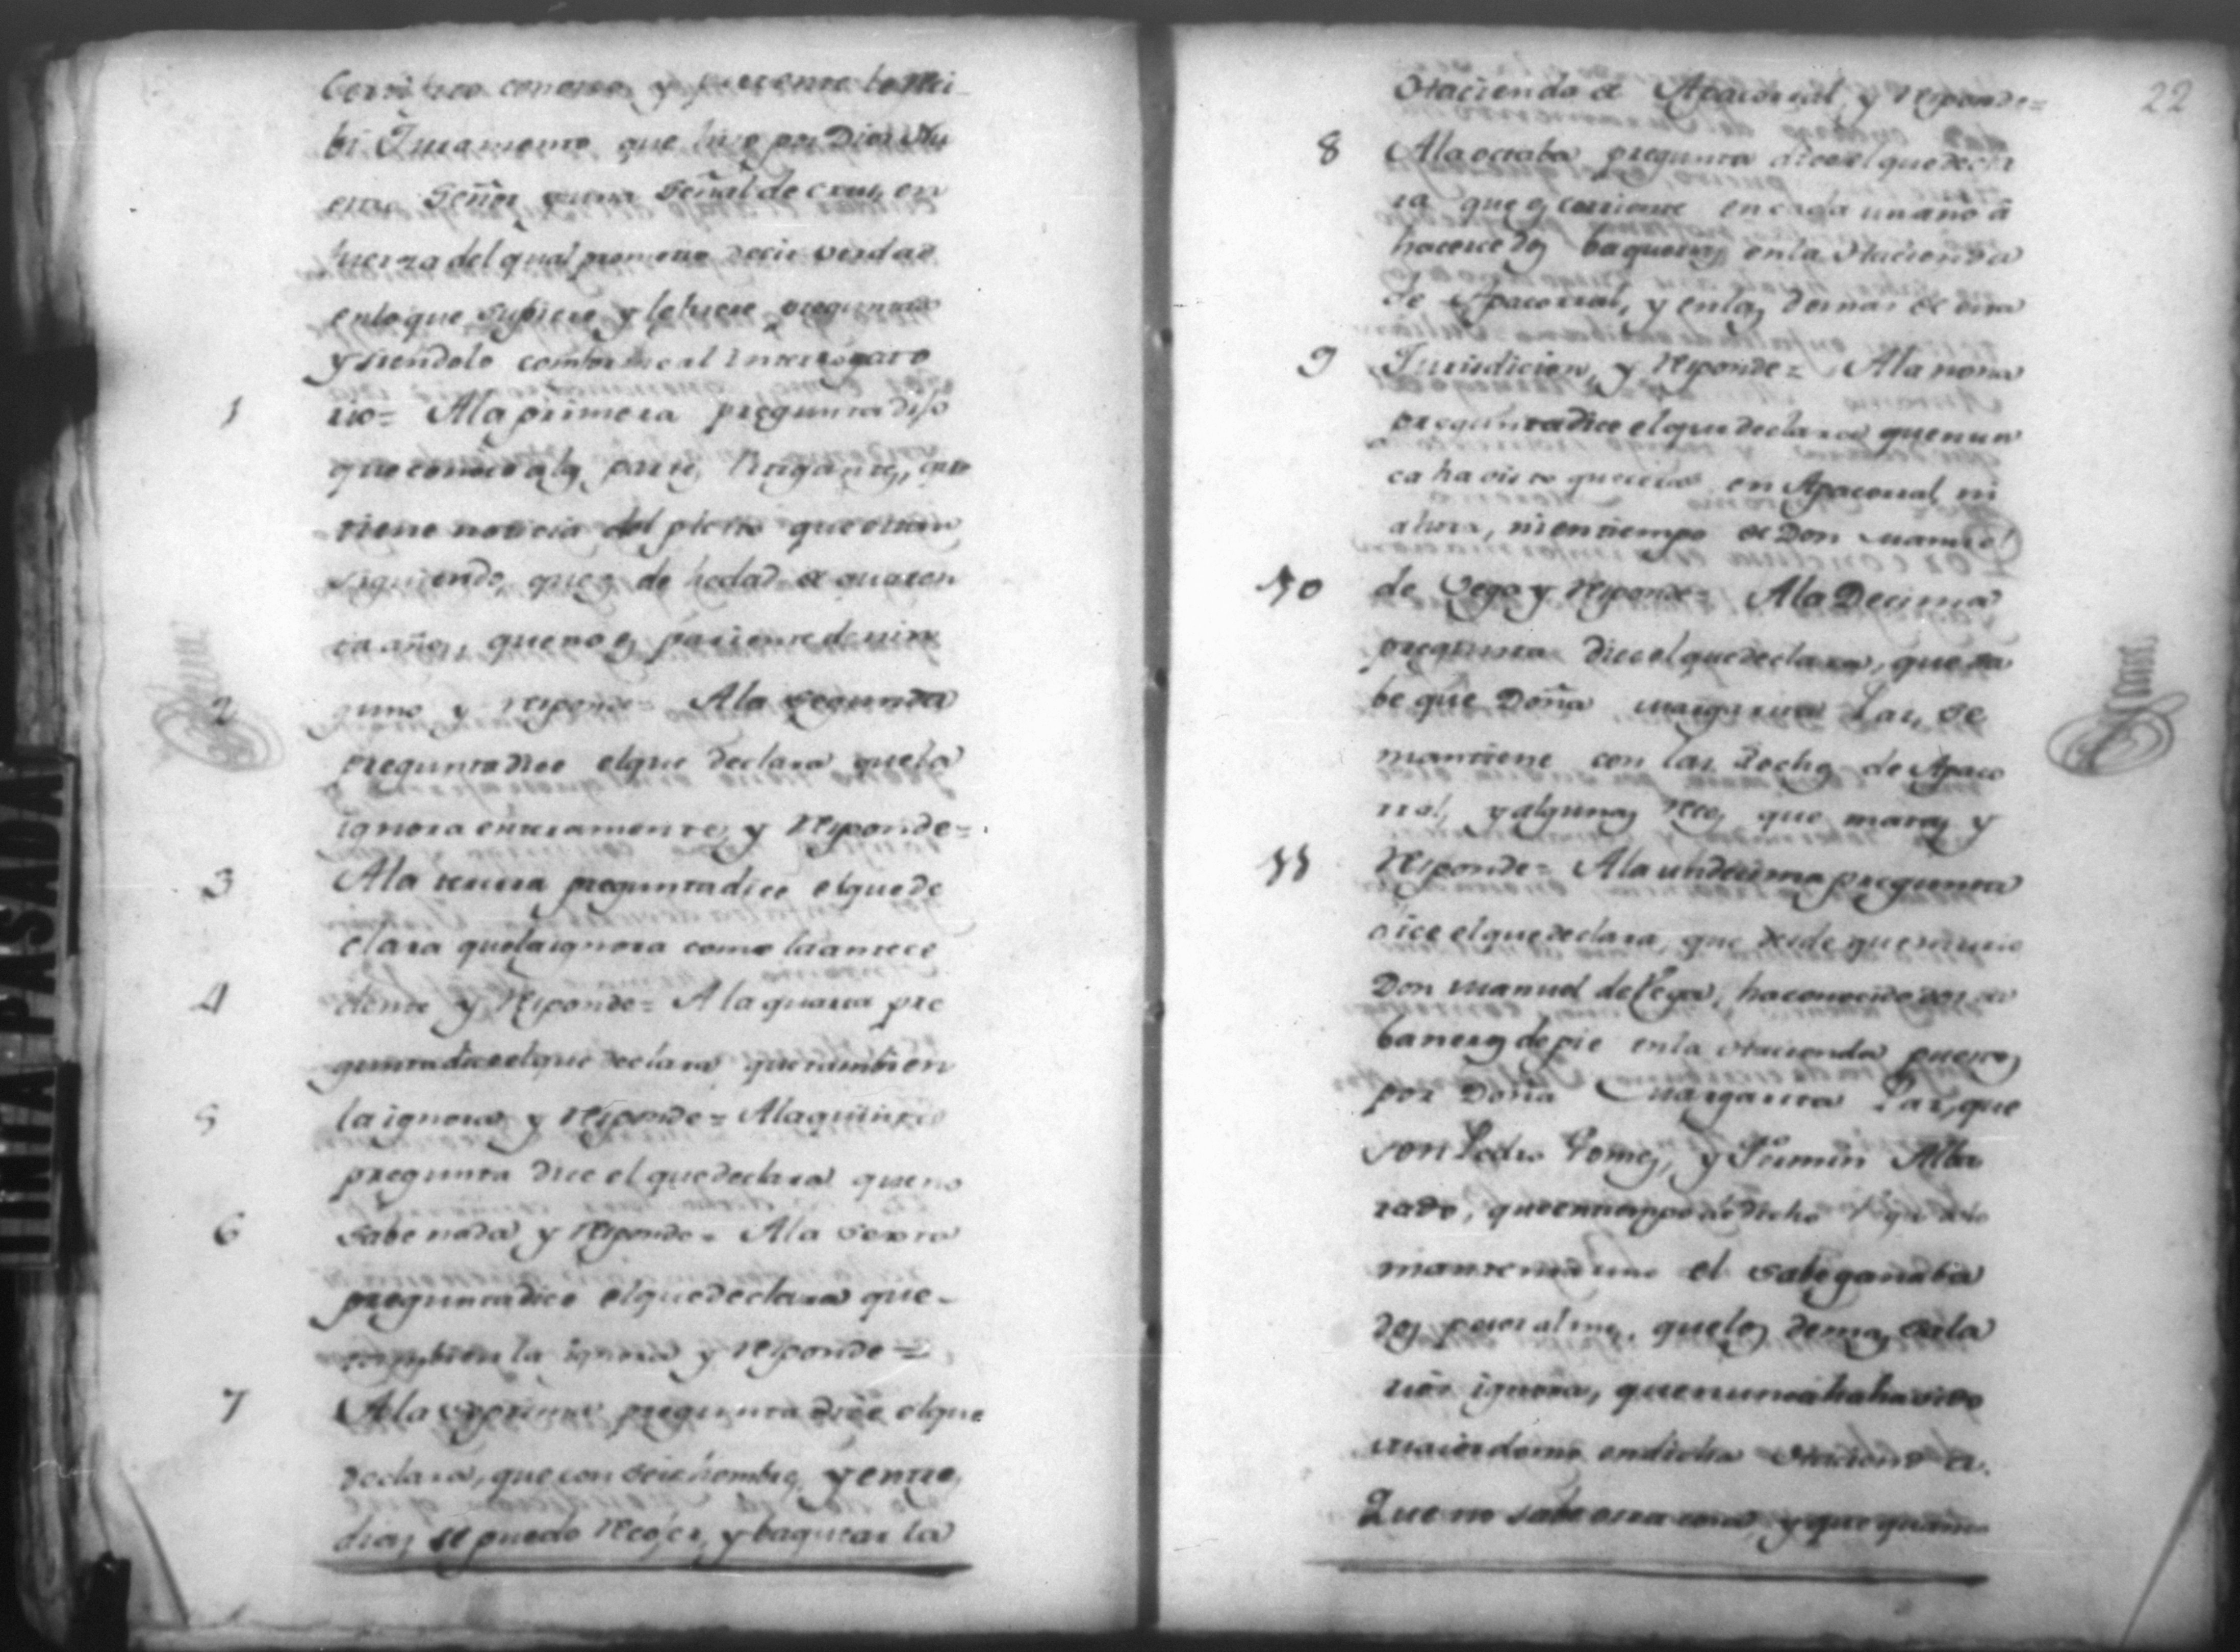 y presente le Reci
bi Juramento que hizo por Dios Nu
estro Señor y una Señal de cruz, en
fuerza del qual prometio decir verdad
en lo que supiere y le fuere preguntado
y siendolo comforme al Interrogato
1 rio= A la primera pregunta dijo
que conoce a las partes litigantes, que
tiene noticia del pleito que estan
siguiendo, que es de hedad de quaren
ta años, que no es pariente de nin
2 guno y responde= A la segunda
pregunta dice el que declara que la
ignora enteramente, y responde=
3 A la tercera pregunta dice el que de
clara que la ignora como la antece
4 dente y responde= A la quarta pre
gunta dice el que declara que tambien
5 la ignora y responde= A la quinta
pregunta dice el que declara que no
6 sabe nada y responde= A la sexta
pregunta dice el que declara que
tambien la ignora y responde=
7 A la septima pregunta dice el que
declara, que con seis hombres, y en tres
dias se puede recojer, y baquear la
22
Hacienda de Apacorral, y responde=
8 A la octaba pregunta dice el que decla
ra que es corriente en cada un año â
hacerce dos baquerias en la Hacienda
de Apacorral, y en las demas de esta
9 Jurisdicion, y responde= A la nona
pregunta dice el que declara que nun
ca ha visto queseras en Apacorral, ni
ahora, ni en tiempo de Don Manuel
10 de Vega y responde= A la Decima
pregunta dice el que declara, que sa
be que Doña Margarita Paz, se
mantiene con las leches de Apaco
rral, y algunas reces que matan y
11 responde= A la undecima pregunta
dice el que declara, que desde que murio
Don Manuel de Vega, ha conocido dos sa
baneros de pie en la Hacienda puestos
por Doña Margarita Paz, que
son Pedro Gomes, y Fermin Alba
rado, que en tiempo de dicho Vega solo
mantenia uno el qual ganaba
dos pesos al mes, que lo demas de la
ignora, que nunca ha havido
Maiordomo en dicha Hacienda.
Que no sabe otra cosa, y que quanto